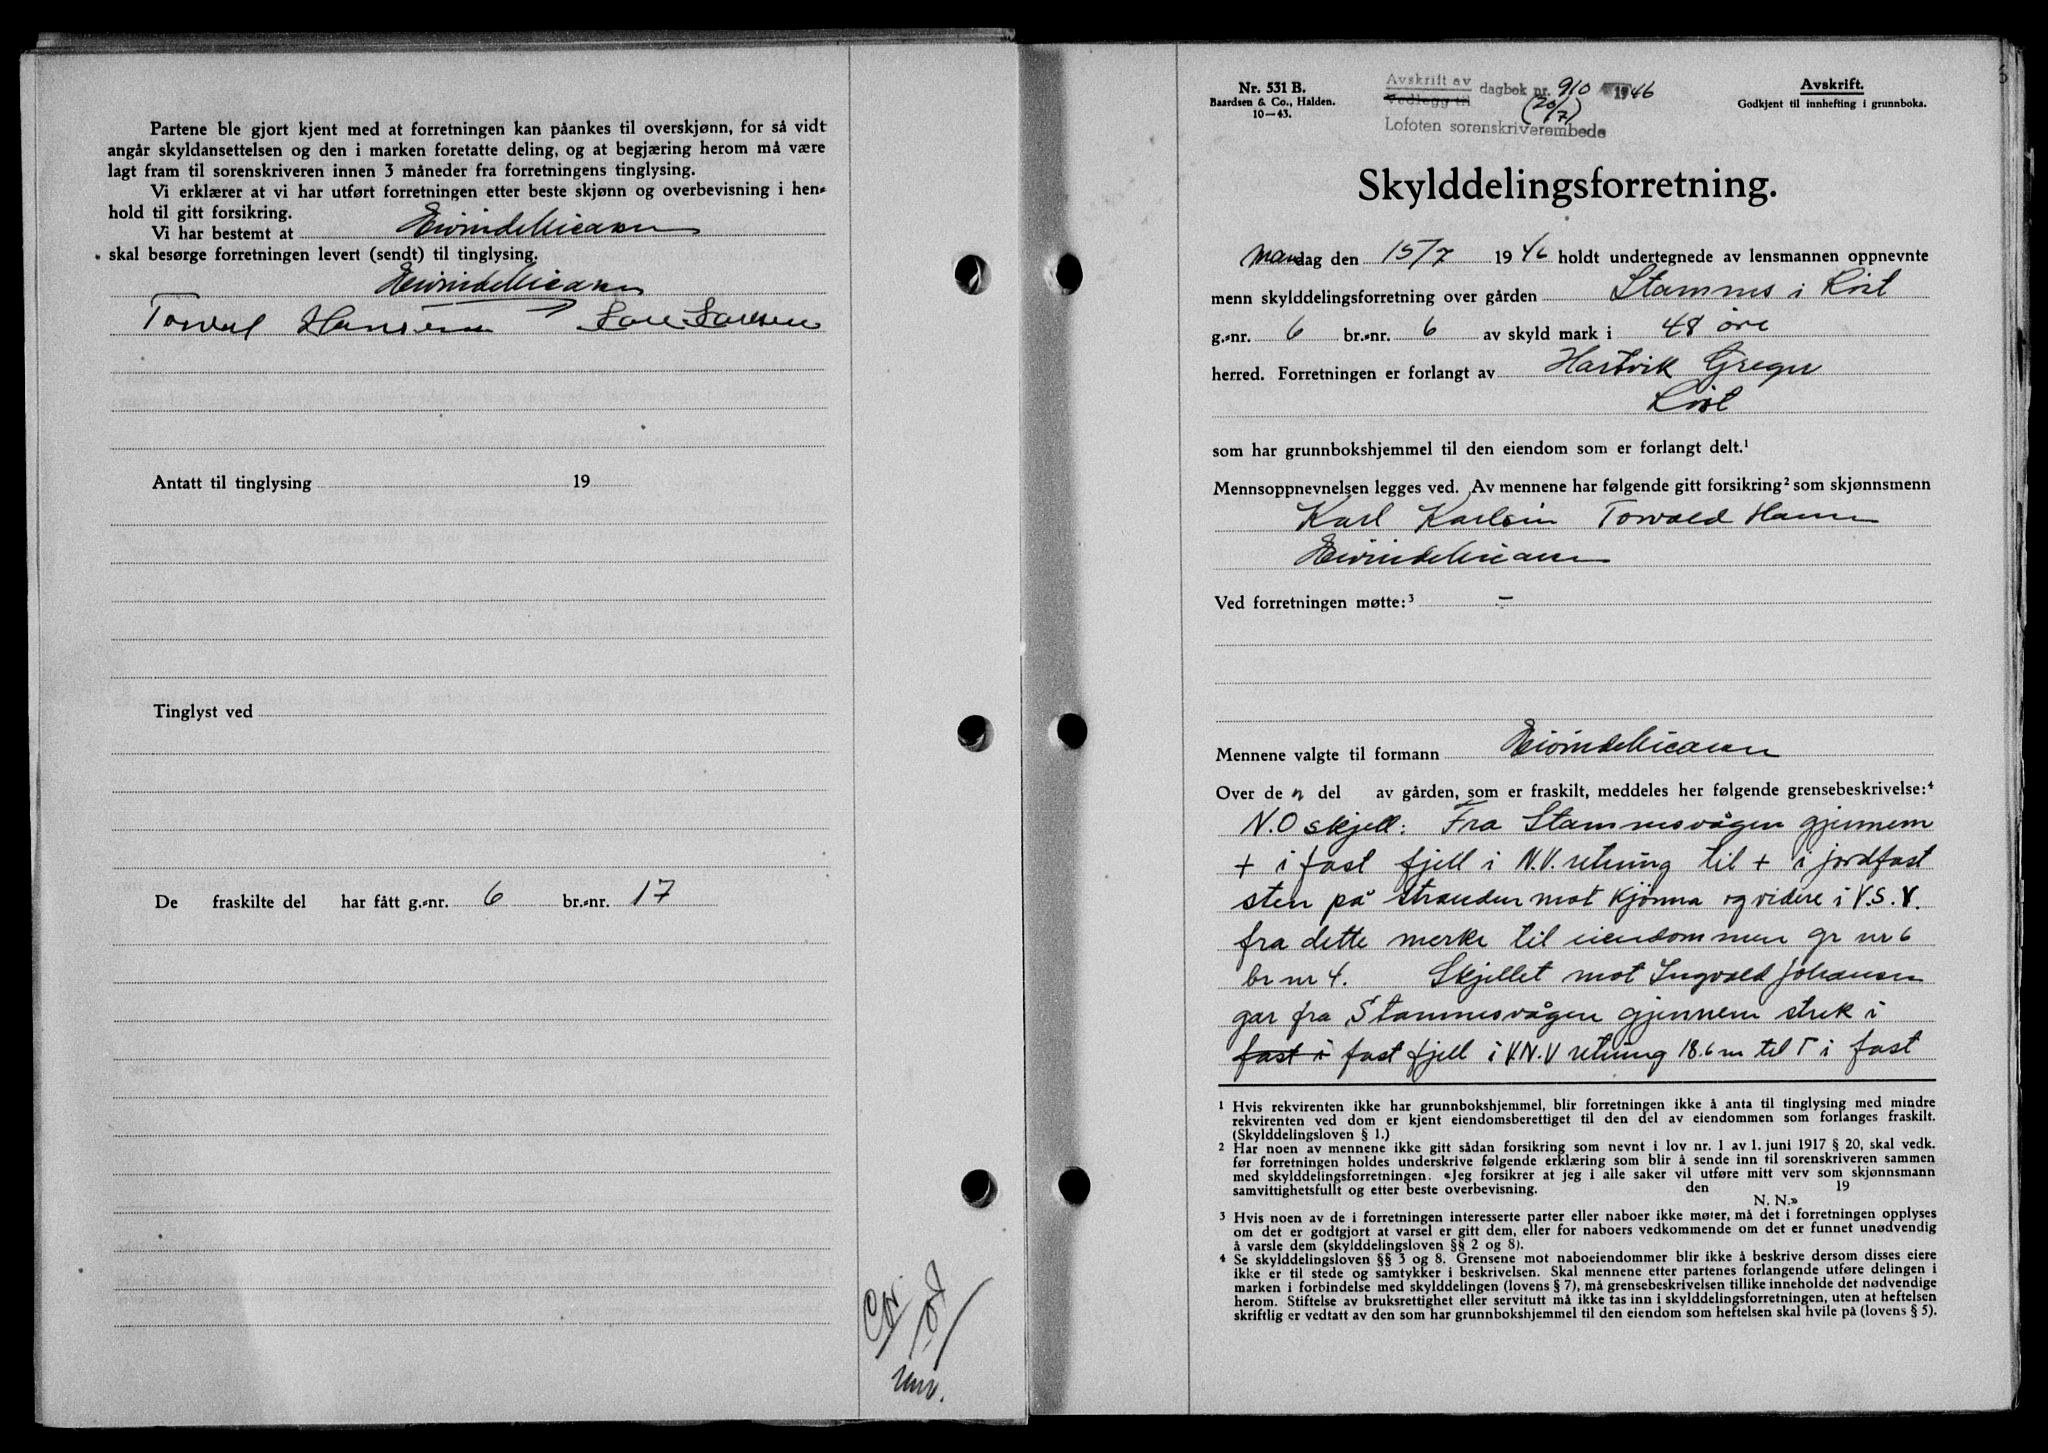 Partene ble gjort kjent med at forretningen kan påankes til overskjønn, for så vidt
angår skyldansettelsen og den i marken foretatte deling, og at begjæring herom må være
lagt fram til sorenskriveren innen 3 måneder fra forretningens tinglysing.
Vi erklærer at vi har utført forretningen etter beste skjønn og overbevisning i hen-
hold til gitt forsikring.
Vi har bestemt at
skal besørge forretningen levert (sendt) til tinglysing.
Torvel Hansen
Antatt til tinglysing 19
Tinglyst ved
De fraskilte del har fått g.-nr. 6 br.-nr. 17
Nr. 531 B.
Baardsen & Co., Halden.
10—43.
Avskrift av
Vedlegg til
dagbok nr. 910 1946
(20/7)
Lofoten sorenskriverembede
Avskrift.
Godkjent til innhefting i grunnboka.
Skylddelingsforretning.
Mandag den 15/7 1946 holdt undertegnede av lensmannen oppnevnte
menn skylddelingsforretning over gården Stamnes i Røst
g.-nr. 6 br.-nr. 6 av skyld mark i 48 øre
herred. Forretningen er forlangt av Hartvik Greger
Røst
som har grunnbokshjemmel til den eiendom som er forlangt delt.¹
Mennsoppnevnelsen legges ved. Av mennene har følgende gitt forsikring² som skjønnsmenn
Karl Karlsen Torvald Hansen
Ved forretningen møtte:³ –
Mennene valgte til formann
Over de n del av gården, som er fraskilt, meddeles her følgende grensebeskrivelse:⁴
N.O skjell: Fra Stamnesvågen gjennem
+ i fast fjell i N.V. retning til + i jordfast
sten på stranden mot Kjønna og videre i V.S.V.
fra dette merke til eiendommen gr nr 6
br nr 4. Skjellet mot Ingvald Johansen
går fra Stamnesvågen gjennem strek i
fast i fast fjell i V.N.V retning 18.6 m til T i fast
¹ Hvis rekvirenten ikke har grunnbokshjemmel, blir forretningen ikke å anta til tinglysing med mindre
rekvirenten ved dom er kjent eiendomsberettiget til den del av eiendommen som forlanges fraskilt.
(Skylddelingsloven § 1.)
² Har noen av mennene ikke gitt sådan forsikring som nevnt i lov nr. 1 av 1. juni 1917 § 20, skal vedk.
før forretningen holdes underskrive følgende erklæring som blir å sende inn til sorenskriveren sammen
med skylddelingsforretningen: «Jeg forsikrer at jeg i alle saker vil utføre mitt verv som skjønnsmann
samvittighetsfullt og etter beste overbevisning. den 19
N. N.»
³ Hvis noen av de i forretningen interesserte parter eller naboer ikke møter, må det i forretningen opplyses
om det er godtgjort at varsel er gitt dem, eller for naboers vedkommende om det er funnet unødvendig
å varsle dem (skylddelingsloven §§ 2 og 8).
⁴ Se skylddelingsloven §§ 3 og 8. Grensene mot naboeiendommer blir ikke å beskrive dersom disses eiere
ikke er til stede og samtykker i beskrivelsen. Skal mennene etter partenes forlangende utføre delingen i
marken i forbindelse med skylddelingen (lovens § 7), må grensebeskrivelsen tillike inneholde det nødvendige
herom. Stiftelse av bruksrettighet eller servitutt må ikke tas inn i skylddelingsforretningen, uten at heftelsen
skriftlig er vedtatt av den som har grunnbokshjemmel til den eiendom som heftelsen skal hvile på (lovens § 5).